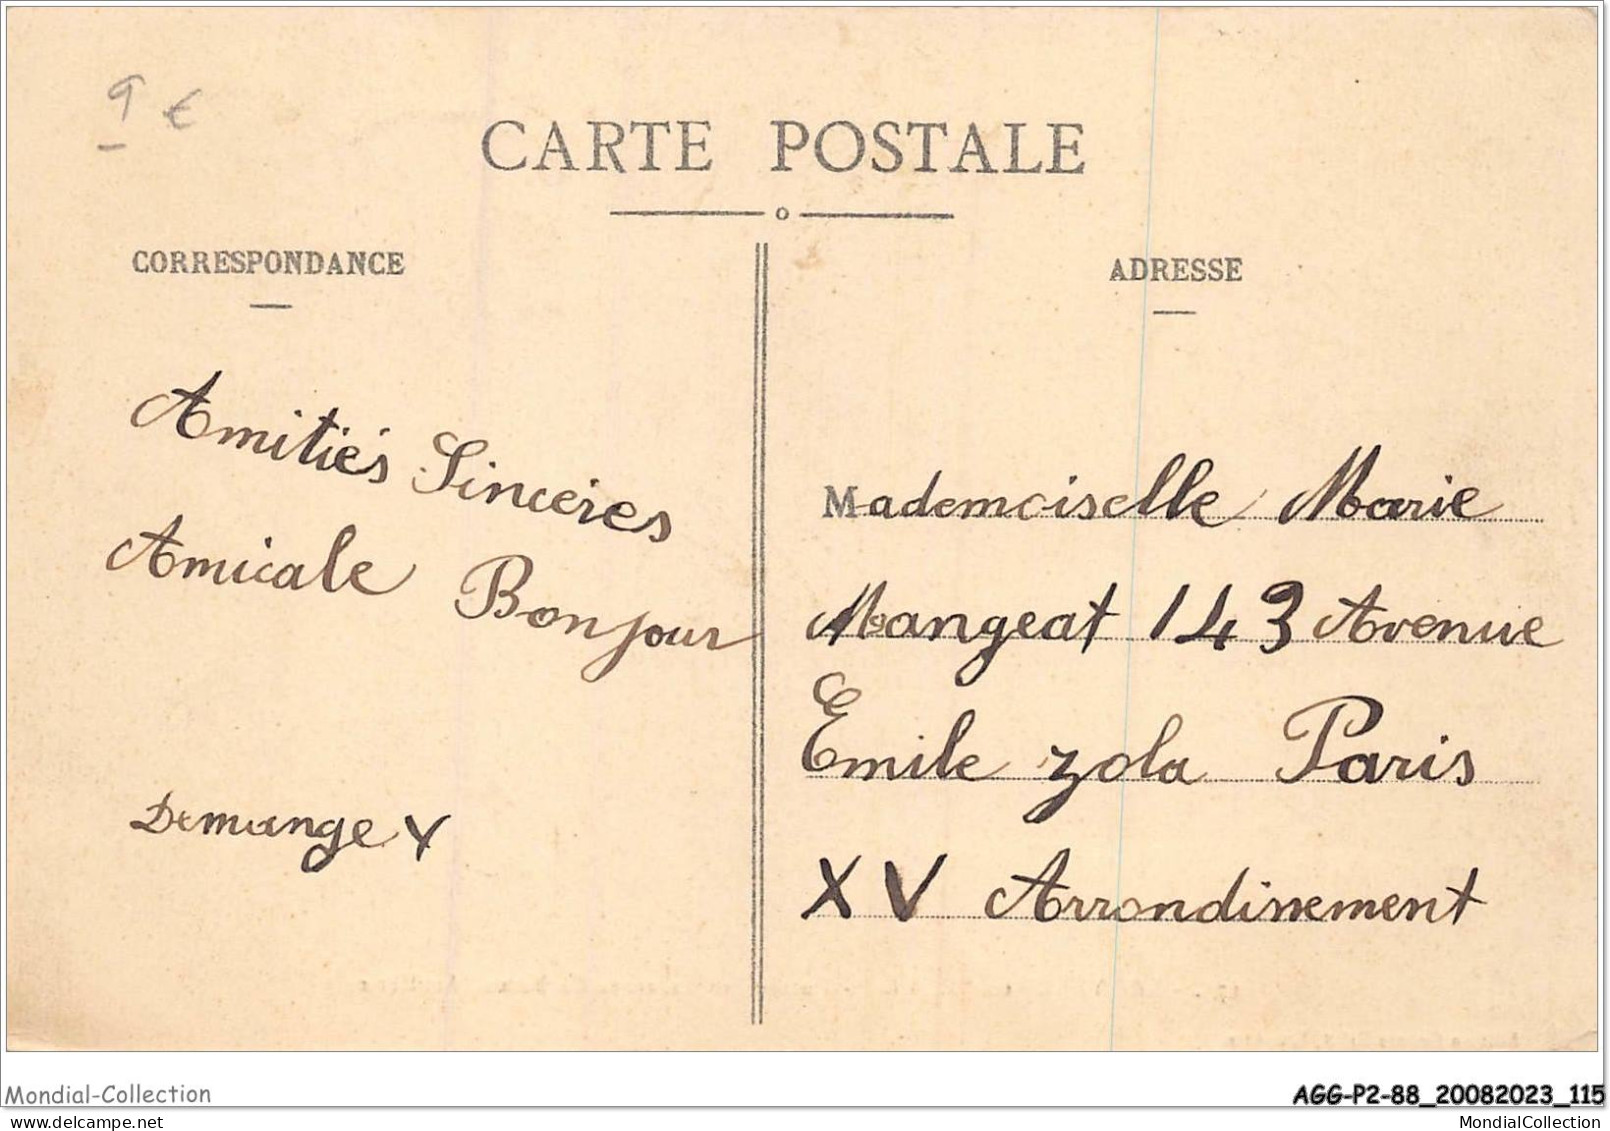 9 €
CARTE POSTALE
CORRESPONDANCE
ADRESSE
Amitiés Sincères
Amicale Bonjour
Demange
Mademoiselle Marie
Mangeat 143 Avenue
Emile zola Paris
XV Arrondissement
Mondial-Collection
AGG-P2-88_20082023_115
mondial-collection
MondialCollection